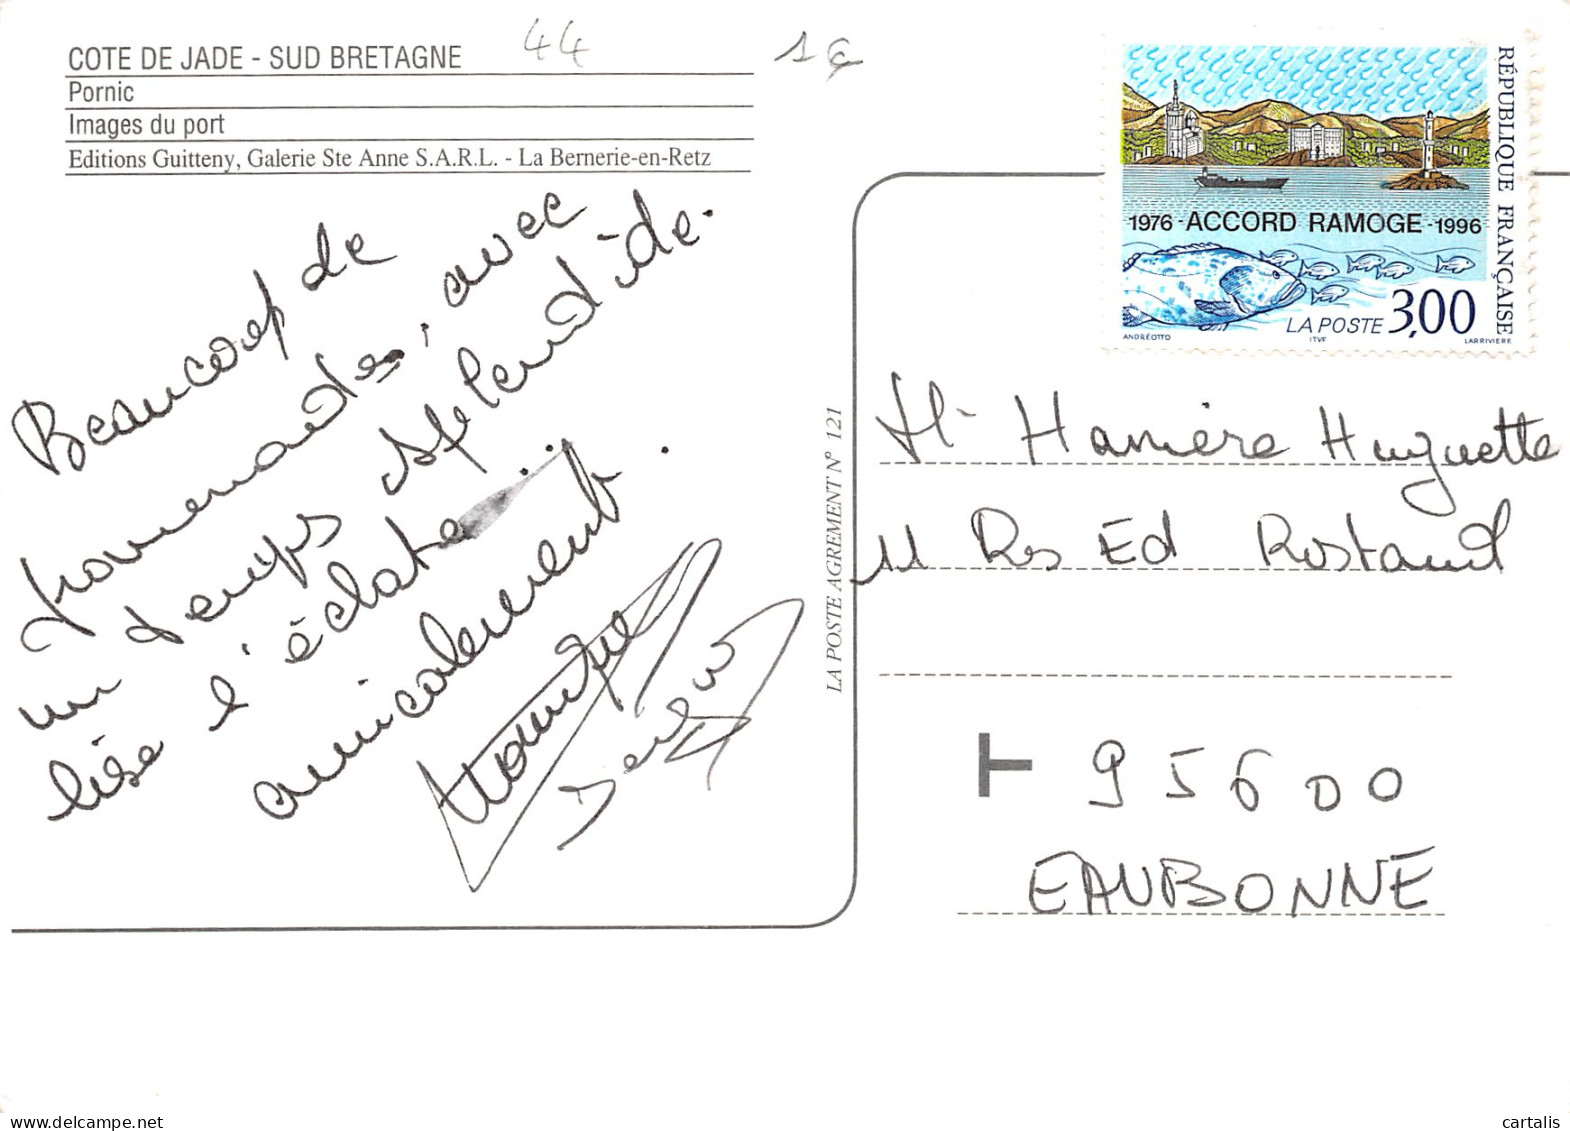 COTE DE JADE - SUD BRETAGNE
44
1€
Pornic
Images du port
Editions Guitteny, Galerie Ste Anne S.A.R.L. - La Bernerie-en-Retz
Beaucoup de
promenades, avec
un temps splendide.
lise l'éclate...
amicalement.
LA POSTE AGREMENT N° 121
RÉPUBLIQUE FRANÇAISE
1976 - ACCORD RAMOGE - 1996
LA POSTE 3,00
ANDRÉOTTO ITVF LARRIVIERE
Huguette
11 Res Ed Rostand
T 95600
EAUBONNE
cartalis